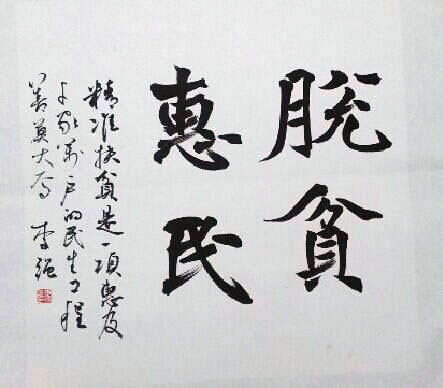 脱貧
惠民
精准扶貧是一项惠及
千家萬户的民生工程
善莫大焉 李强